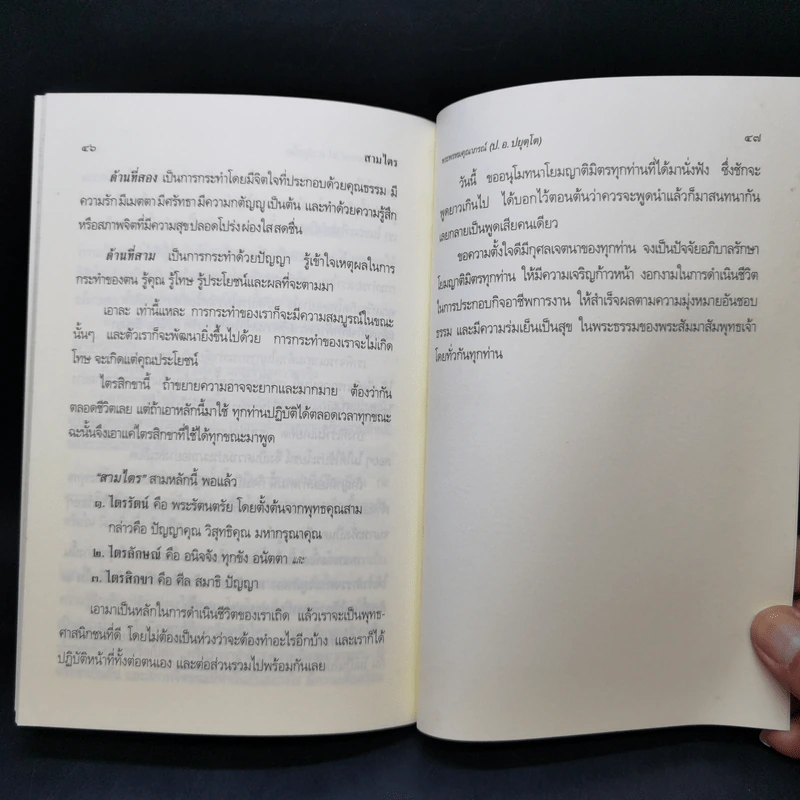 ๔๖
สามไตร
ด้านที่สอง เป็นการกระทำโดยมีจิตใจที่ประกอบด้วยคุณธรรม มี
ความรัก มีเมตตา มีศรัทธา มีความกตัญญู เป็นต้น และทำด้วยความรู้สึก
หรือสภาพจิตที่มีความสุข ปลอดโปร่ง ผ่องใส สดชื่น
ด้านที่สาม เป็นการกระทำด้วยปัญญา รู้เข้าใจเหตุผลในการ
กระทำของตน รู้คุณ รู้โทษ รู้ประโยชน์และผลที่จะตามมา
เอาละ เท่านี้แหละ การกระทำของเราก็จะมีความสมบูรณ์ในขณะ
นั้นๆ และตัวเราก็จะพัฒนายิ่งขึ้นไปด้วย การกระทำของเราจะไม่เกิด
โทษ จะเกิดแต่คุณประโยชน์
ไตรสิกขานี้ ถ้าขยายความอาจจะยากและมากมาย ต้องว่ากัน
ตลอดชีวิตเลย แต่ถ้าเอาหลักนี้มาใช้ ทุกท่านปฏิบัติได้ตลอดเวลาทุกขณะ
ฉะนั้นจึงเอาแค่ไตรสิกขาที่ใช้ได้ทุกขณะมาพูด
“สามไตร” สามหลักนี้ พอแล้ว
๑. ไตรรัตน์ คือ พระรัตนตรัย โดยตั้งต้นจากพุทธคุณสาม
กล่าวคือ ปัญญาคุณ วิสุทธิคุณ มหากรุณาคุณ
๒. ไตรลักษณ์ คือ อนิจจัง ทุกขัง อนัตตา
๓. ไตรสิกขา คือ ศีล สมาธิ ปัญญา
เอามาเป็นหลักในการดำเนินชีวิตของเราเถิด แล้วเราจะเป็นพุทธ-
ศาสนิกชนที่ดี โดยไม่ต้องเป็นห่วงว่าจะต้องทำอะไรอีกบ้าง และเราก็ได้
ปฏิบัติหน้าที่ทั้งต่อตนเอง และต่อส่วนรวมไปพร้อมกันเลย
พระพรหมคุณาภรณ์ (ป. อ. ปยุตฺโต)
๔๗
วันนี้ ขออนุโมทนาโยมญาติมิตรทุกท่านที่ได้มานั่งฟัง ซึ่งชักจะ
พูดยาวเกินไป ได้บอกไว้ตอนต้นว่าควรจะพูดนำแล้วก็มาสนทนากัน
เลยกลายเป็นพูดเสียคนเดียว
ขอความตั้งใจดีมีกุศลเจตนาของทุกท่าน จงเป็นปัจจัยอภิบาลรักษา
โยมญาติมิตรทุกท่าน ให้มีความเจริญก้าวหน้า งอกงามในการดำเนินชีวิต
ในการประกอบกิจอาชีพการงาน ให้สำเร็จผลตามความมุ่งหมายอันชอบ
ธรรม และมีความร่มเย็นเป็นสุข ในพระธรรมของพระสัมมาสัมพุทธเจ้า
โดยทั่วกันทุกท่าน